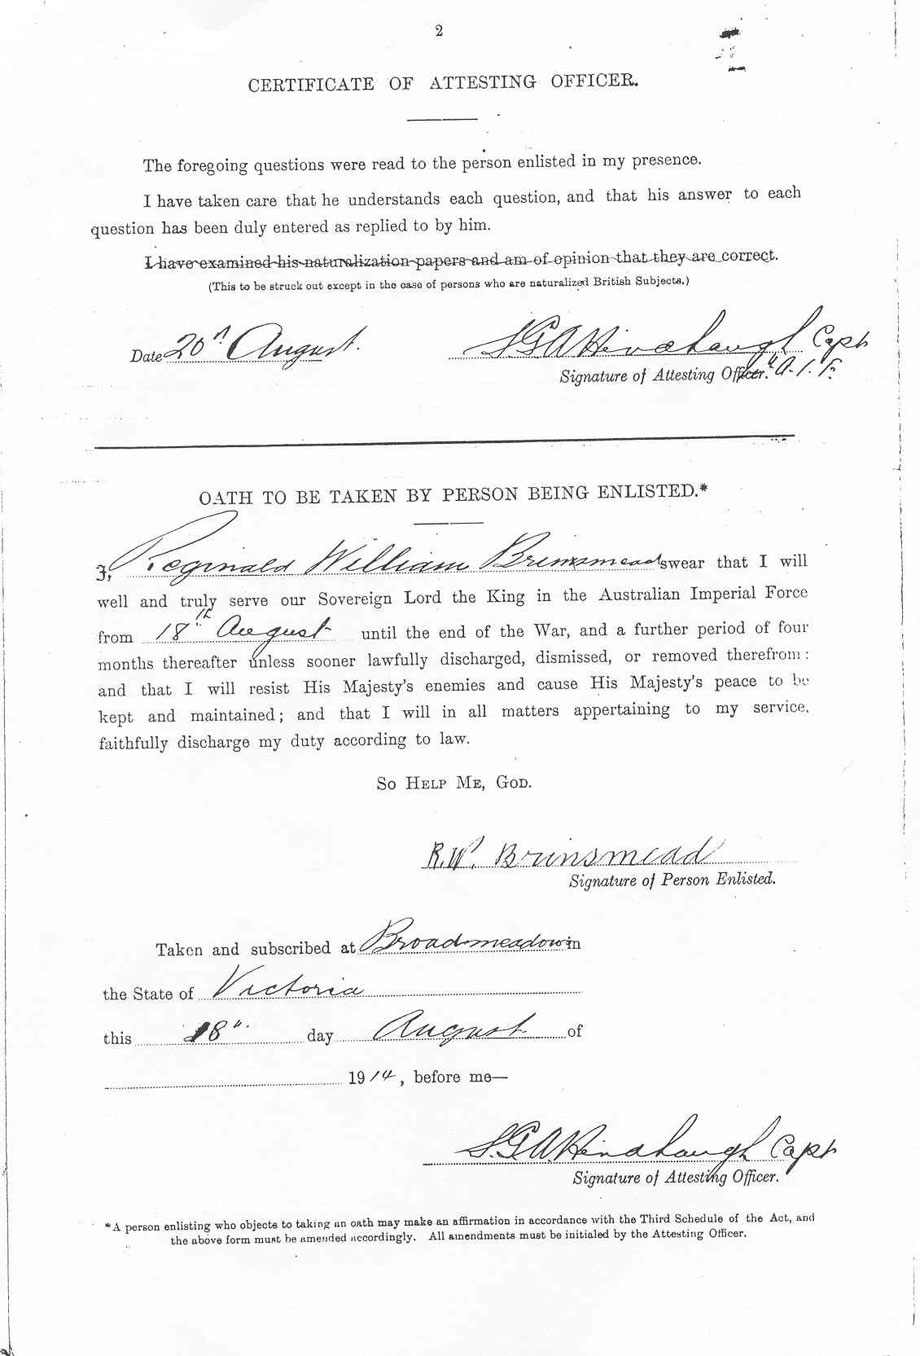 2
CERTIFICATE OF ATTESTING OFFICER.
The foregoing questions were read to the person enlisted in my presence.
I have taken care that he understands each question, and that his answer to each
question has been duly entered as replied to by him.
I have examined his naturalization papers and am of opinion that they are correct.
(This to be struck out except in the case of persons who are naturalized British Subjects.)
Date 20th August. S.G.A Hindhaugh Capt
Signature of Attesting Officer. A.I.F.
OATH TO BE TAKEN BY PERSON BEING ENLISTED.*
I, Reginald William Brinsmead swear that I will
well and truly serve our Sovereign Lord the King in the Australian Imperial Force
from 18th August until the end of the War, and a further period of four
months thereafter unless sooner lawfully discharged, dismissed, or removed therefrom :
and that I will resist His Majesty's enemies and cause His Majesty's peace to be
kept and maintained; and that I will in all matters appertaining to my service,
faithfully discharge my duty according to law.
SO HELP ME, GOD.
R.W. Brinsmead
Signature of Person Enlisted.
Taken and subscribed at Broadmeadow in
the State of Victoria
this 18th day August of
1914, before me—
S.G.A Hindhaugh Capt
Signature of Attesting Officer.
*A person enlisting who objects to taking an oath may make an affirmation in accordance with the Third Schedule of the Act, and
the above form must be amended accordingly. All amendments must be initialed by the Attesting Officer.